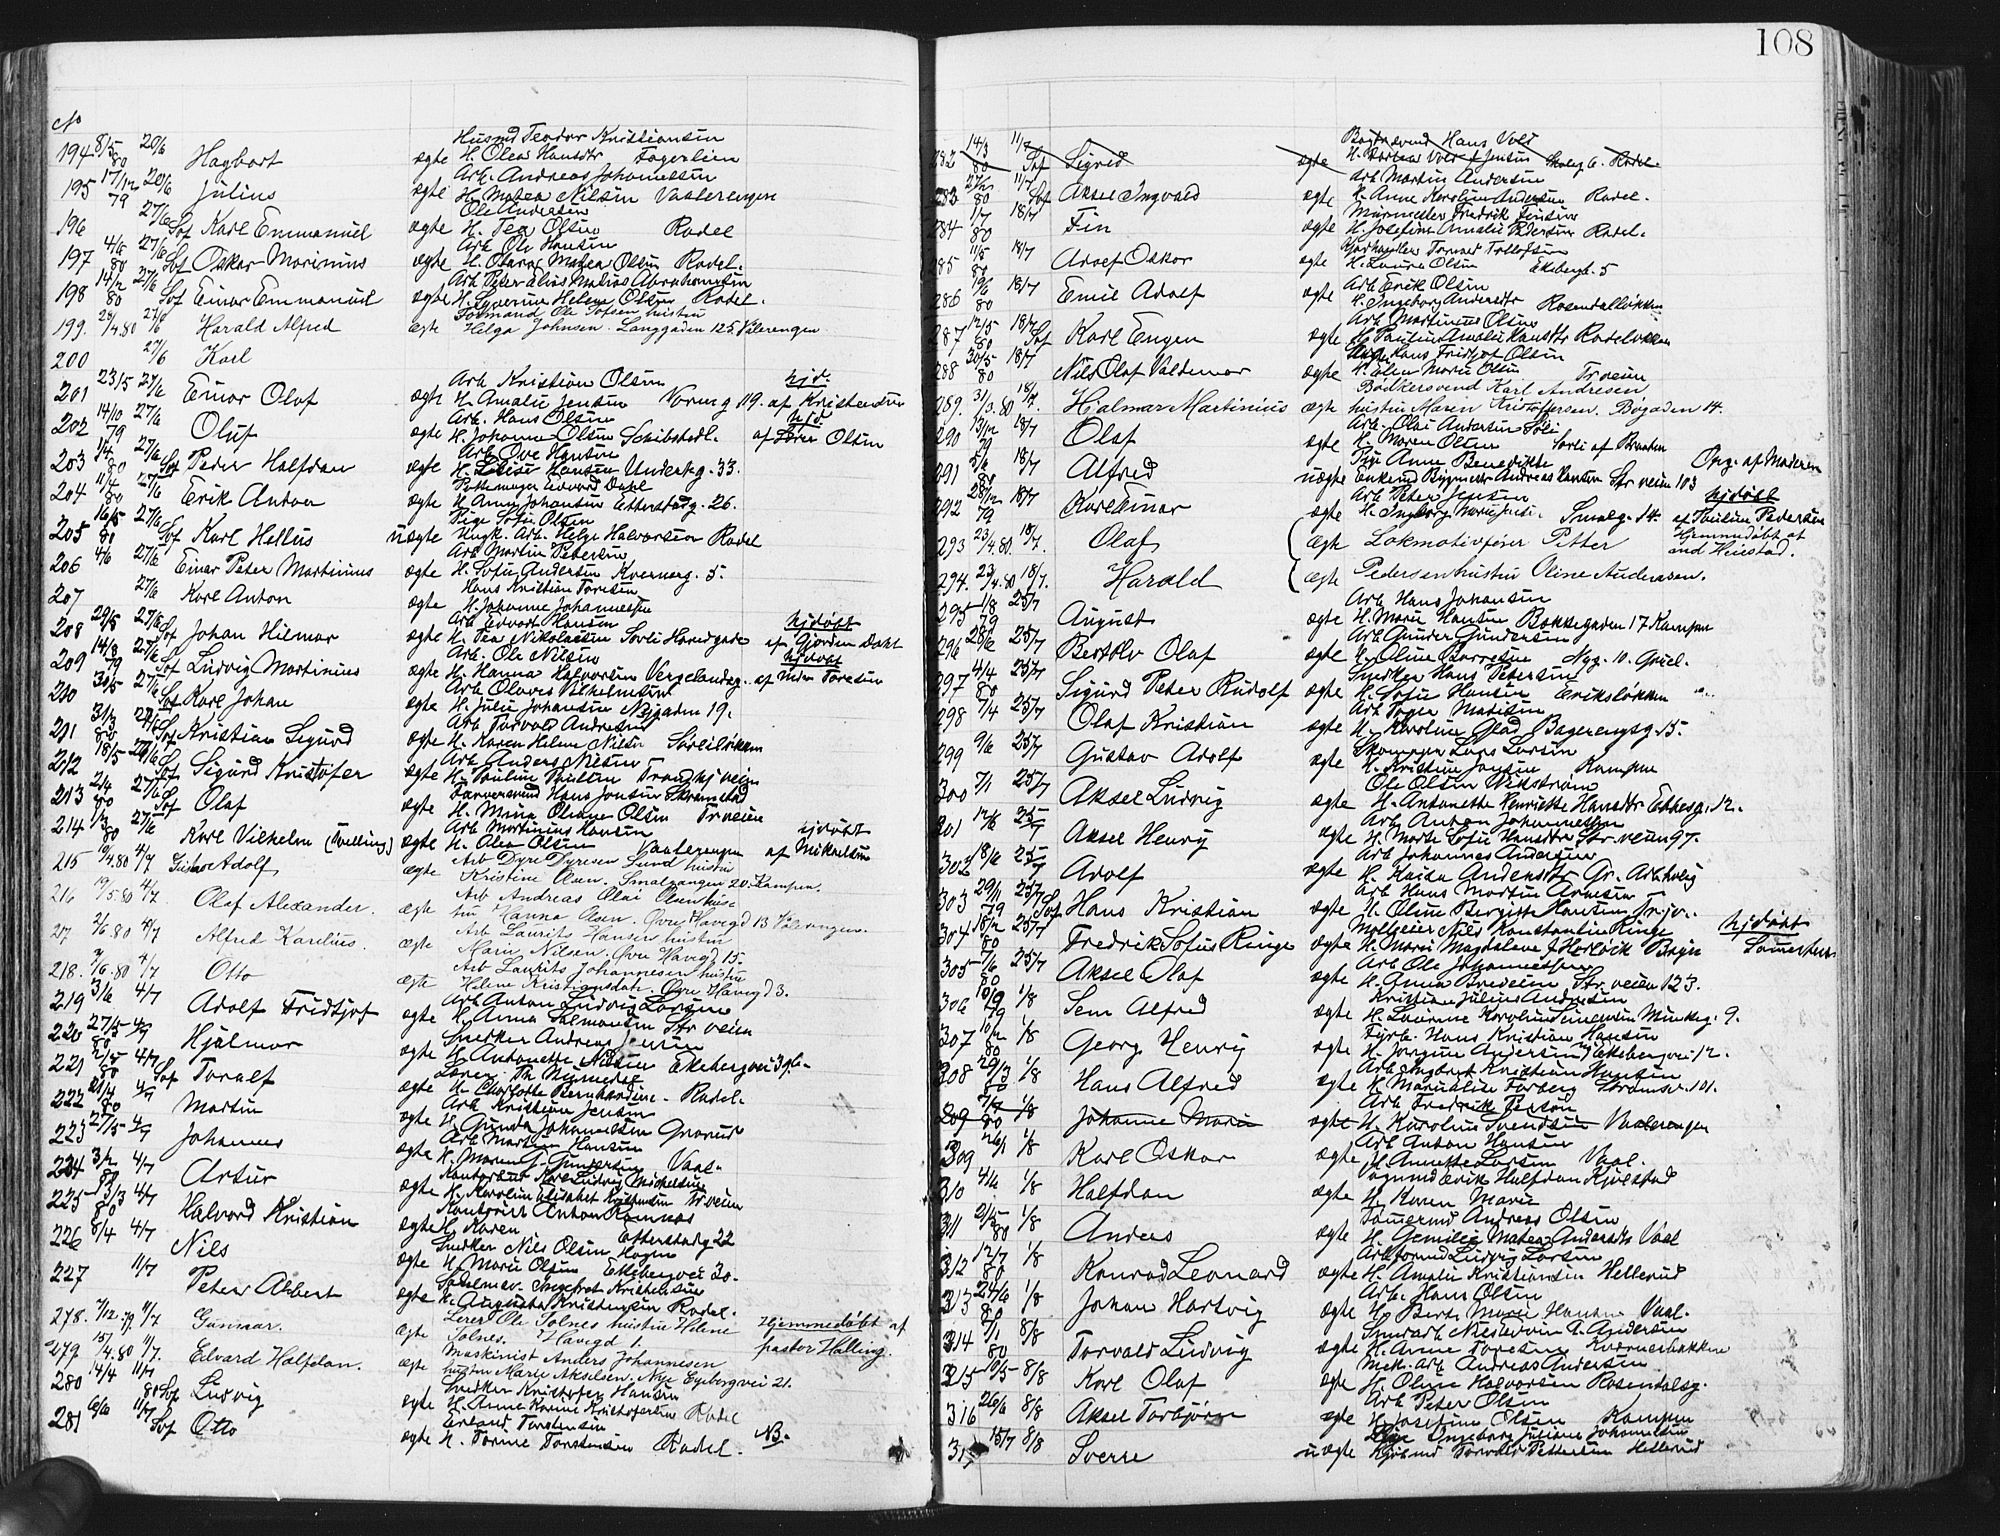 108
No
Husmd Teodor Kristiansen
194 8/5 80 20/6 Hagbart ægte H. Olea Hansdtr Fagerlien
Arb. Andreas Johannesen
195 17/12 79 20/6 Julius ægte H. Matea Nilsen Vaalerengen
Ole Andersen
196 27/6 Sof Karl Emmanuel ægte H. Tea Olsen Rodel
Arb Ole Hansen
197 4/6 80 27/6 Sof Oskar Marinius ægte H. Matea Olsen Rodel.
Arb Peter Elias Matias Abrahamsen
198 14/2 80 27/6 Sof Einar Emmanuel ægte H. Severine Helene Olsen Rodel.
Formand Ole Tofsen hustru
199. 28/4.80 27/6 Harald Alfred ægte Helga Johnsen. Langgaden 125 Valerengen
200 27/6 Karl
Arb Kristian Olsen hjd.
201 23/5 27/6 Einar Olaf ægte H. Amalie Jensen Vorm g 119. af Kristensen
Arb. Hans Olsen hjd.
202 14/10 79 27/6 Oluf ægte H. Johanne Olsen Schibstedl. af Olsen
Arb Ove Hansen
203 80 27/6 Sof Peder Halfdan ægte H. Lovise Hansen Underhg. 33.
Pottemager Edvard Dahl
204 11/4 80 27/6 Erik Anton ægte H. Anna Johansen Etterstadg. 26.
Pige Sofie Olsen
205 16/5 80 27/6 Sof Karl Hellus uægte Ungk. Arb. Helge Halvorsen Rodel
Arb Martin Petersen
206 4/6 27/6 Einar Peter Martinius ægte H. Sofie Andersen Kvernerg. 5.
Hans Kristian Toresen
207 27/6 Karl Anton ægte H. Johanne Johannessen
Arb Edvart Hansen hjdøbt
208 29/5 27/6 Sof Johan Hilmar ægte H. Tea Nikolaisen Sorli Havegade af Gjorden Dahl
Arb. Ole Nilsen hjdøbt
209 14/8 79 27/6 Sof Ludvig Martinius ægte H. Hanna Halvorsen Vergelandsg. af Toresen
Arb Olavus Vilhelmsen
210 30/5 27/6 Sof Karl Johan ægte H. Julie Johansen Nygaden 19.
Arb Torvald Andresen
211 31/3 80 27/6 Sof Kristian Sigurd ægte H. Karen Helene Nilsen Sorliløkken
Arb Anders Nilsen
212 18/5 27/6 Sof Sigurd Kristofer ægte H. Pauline Paulsen Trondhj veien
Farversvend Hans Jonsen Skramstad
213 2/4 80 27/6 Sof Olaf ægte H. Mina Oliane Olsen Tr veien
Arb Martinius Hansen hjdøbt
214 1/3 80 27/6 Karl Vilhelm (Tvilling) ægte H. Olea Olsen Vaalerengen af Mikaelsen
Arb Dyre Dyresen Lund hustru
215 10/4.80 4/7 Gustav Adolf ægte Kristine Olsen. Smalgangen 20. Kampen.
Arb Andreas Olai Olsen hus-
216 19/5.80 4/7 Olaf Alexander. ægte tru Hanna Olsen. Øvre Havegd 13 Valerengen.
Arb Laurits Hansen hustru
217 2/6.80 4/7 Alfred Karelius. ægte Marie Nilsen. Øvre Havegd 15.
Arb Laurits Johannesen hustru
218. 9/6.80 4/7 Otto ægte Helene Kristiansdatr. Øvre Havegd 3.
Arb Anton Ludvig Larsen
219 3/6 4/7 Adolf Fridtjof ægte H. Anna Salmonsen Str veien
Snedker Andreas Jensen
220 27/5 80 4/7 Hjalmar ægte H. Antonette Nilsen Ekebergvei 39b.
Lærer Th
221 2/5 80 4/7 Sof Toralf ægte H. Charlotte Bernhardine. Rodel.
Arb Kristian Jensen
222 21/4 80 4/7 Martin ægte H. Gunda Johannessen Grorud
Arb Martin Hansen
223 27/5 4/7 Johannes ægte H. Maren G. Gundersen Vaal.
Kontorist Karl Ludvig Mickelsen
224 3/2 80 4/7 Artur ægte H. Karoline Elisabet Kristensen Tr veien
Kontorist Anton Ramnæs
225 13/3 80 4/7 Halvord Kristian ægte H. Karen Etterstadg 22
Snedker Nils Olsen Hagen
226 8/4 4/7 Nils ægte H. Marie Olsen Ekebergvei 30.
Sadelmsv. Ingebret Kristensen
227 11/7 Peter Albert ægte H. Augusta Kristensen Rodel.
Lærer Ole Tolnes hustru Helene Hjemmedøbt af
278. 7/12.79 11/7 Gunnar. ægte Tolnes. Havegd 1. pastor Halling.
Maskinist Anders Johannesen
279. 15/4.80 11/7. Edvard Halfdan. ægte hustru Marie Akselsen. Nye Egebergvei 21.
Snedker Kristofer Hansen
280 14/4 80 11/7 Sof Ludvig ægte H. Anne Karine Kristofersen Rodel
Erland Torstensen NB.
281 6/6 11/7 Sof Otto ægte H. Torine Torstensen Rodel.
Bagersvend Hans Vold
282 14/3 80 11/7 Sof Sigrid ægte H. Vold f Jensen Smalg 6. Rodel.
Arb Martin Andersen
283 27/2 80 11/7 Sof Aksel Ingvald ægte H. Anne Karoline Andersen Rodel.
Murmester Fredrik Jensen
284 1/7 80 18/7 Fin ægte H. Josefine Amalie Pedersen Rodel.
Tormod Tollefsen
285 11/5 80 18/7 Adolf Oskar ægte H. Laura Olsen Ekebergv. 5
Arb Erik Olsen
286 19/6 80 18/7 Emil Adolf ægte H. Ingeborg Andersdtr Rosendalløkken
Arb Martinius Olsen
287 12/5 80 18/7 Sof Karl Eugen ægte H. Pauline Amalie Hansdtr Rodeløkken
Hans Fridtjof Olsen
288 30/5 80 18/7 Nils Olaf Valdemar ægte H. Elen Marie Olsen Tr veien
Bødkersvend Karl Andresen
289. 31/3.80 18/7. Hjalmar Martinius ægte hustru Maren Kristoffersen. Bøgaden 14.
Arb. Olai Andersen Soli
290 13/12 79 18/7 Olaf ægte H. Maren Olsen Sorli af Braaten
Pige Anne Benedikte Opg. af Moderen
291 5/6 80 18/7 Alfred uægte Enkemd Bygmestr Andreas Hansen Str veien 103
Arb Peter Jensen hjdøbt
292 28/12 79 18/7 Karl Einar ægte H. Ingeborg Marie Jensen Smalg. 14. af Pauline Pedersen
293 23/4.80. 18/7. Olaf ægte Lokmotivfører Petter Hjemmedøbt at
294. 23/4.80 18/7. Harald ægte Pedersen hustru Oline Andersen.
Arb Hans Johansen
295 1/8 79 25/7 August ægte H. Marie Hansen Bakkegaden 17 Kampen
Arb Gunder Gundersen
296 28/6 25/7 Bertolv Olaf ægte H. Oline Nyg. 10. Grøl.
Snedker Hans Petersen
297 4/4 80 25/7 Sigurd Peter Rudolf ægte H. Sofie Hansen Eriksløkken
Arb Tosten Madisen
298 7/4 25/7 Olaf Kristian ægte H. Karoline Glad Bagerengsg. 15.
Skomager Lars Larsen
299 9/6 25/7 Gustav Adolf ægte H. Kristine Jonsen Kampen
Ole Olsen Vikstrøm
300 7/1 25/7 Aksel Ludvig ægte H. Antonette Henriette Hansdtr Ekebg. 12.
Arb Anton Johannessen
301 12/6 25/7 Aksel Henry ægte H. Marte Sofie Hansdtr Str. veien 97.
Arb Johannes Andersen
302 18/6 25/7 Adolf ægte H. Kaisa Andersdtr Gr. Arbbolig
Arb Hans Martin Arnesen
303 29/11 79 25/7 Sof Hans Kristian ægte H. Oline Bergitte Hansen Tr.jo.
Mølleeier Nils Konstantin Ringe hjdøbt
304 18/2 80 25/7 Fredrik Sofus Ringe ægte H. Marie Magdalene f Horlock Bryn
Arb Ole Johannessen
305 7/6 80 25/7 Aksel Olaf ægte H. Anna Bredesen Str. veien 123.
Kristian Julius Andresen
306 10/9 79 1/8 Sem Alfred ægte H. Laurine Karoline Simensen Munkeg. 9.
Fyrb. Hans Kristian Hansen
307 10/2 80 1/8 Georg Henry ægte H. Jorgine Andersen Ny Ekebergvei 12.
Arb Ingebret Kristian Hansen
308 29/12 79 1/8 Hans Alfred ægte H. Marialise Forberg Strømsv. 101.
Arb Fredrik
309 7/7 80 1/8 Johanne Marie ægte H. Karoline Svendsen Vaalerengen
Arb Anton Hansen
309 26/1 1/8 Karl Oskar ægte H. Annette Larsen Vaal.
Vognmd Erik Halfdan Kjølstad
310 4/6 1/8 Halfdan ægte H. Karen Marie
Tømermd Andreas Olsen
311 21/5 80 1/8 Anders ægte H. Gemilie Matea Andersdtr Vaal
Arbformd Ludvig Larsen
312 12/7 80 1/8 Konrad Leonard ægte H. Amalie Kristiansen Hellerud
Arb. Hans Olsen
313 27/6 80 1/8 Johan Hartvig ægte H. Berte Marie Hansen Vaal.
Andersen
314 7/1 80 8/8 Torvald Ludvig ægte H. Anne Toresen Kværnerbakken
Mek. arb Andreas Andersen
315 10/5 8/8 Karl Olaf ægte H. Oline Halvorsen Rosendalsg.
Arb Peter Olsen
316 26/6 8/8 Aksel Torbjørn ægte H. Josefine Olsen Kampen
Pige Ingeborg Juliane Johannesen
317 15/7 8/8 Sverre uægte Torvald Pettersen Hellerud